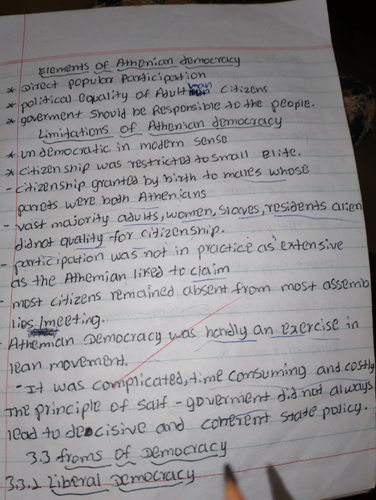 Elements of Athenian democracy
* Direct popular Participation
* political equality of Adult man citizens
* goverment should be Responsible to the people.
Limitations of Athenian democracy
* undemocratic in modern sense
* citizenship was restricted to small Elite.
- citizenship granted by birth to males whose
parets were both Athenians
- vast majority adults, women, slaves, residents alien
didnot quality for citizenship.
- participation was not in practice as extensive
as the Athemian liked to claim
- most citizens remained absent from most assemb
lies/meeting.
- Athemian Democracy was hardly an exercise in
lean movement.
- It was complicated, time consuming and costly
The principle of salf-goverment did not always
lead to decisive and coherent state policy.
3.3 froms of Democracy
3.3.2 Liberal Democracy